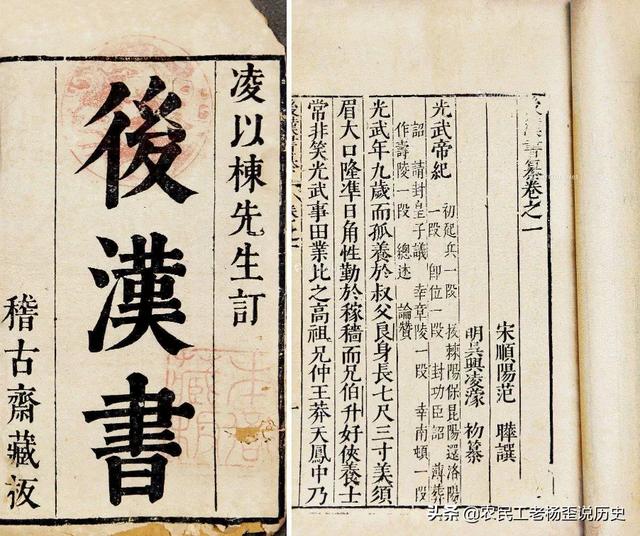 凌以棟先生訂
後漢書
稽古齋藏板
後漢書纂卷之一
宋順陽范 曄譔
明吳興凌濛 初纂
光武帝紀
初起兵一段 拔棘陽保昆陽還洛陽
一段 即位一段 封功臣詔 薄葬
詔 請封皇子議 幸章陵一段 幸南頓一段
作壽陵一段 總述 論贊
光武年九歲而孤養於叔父良身長七尺三寸美須
眉大口隆準日角性勤於稼穡而兄伯升好俠養士
常非笑光武事田業比之高祖兄仲王莽天鳳中乃
头条 @农民工老杨歪说历史